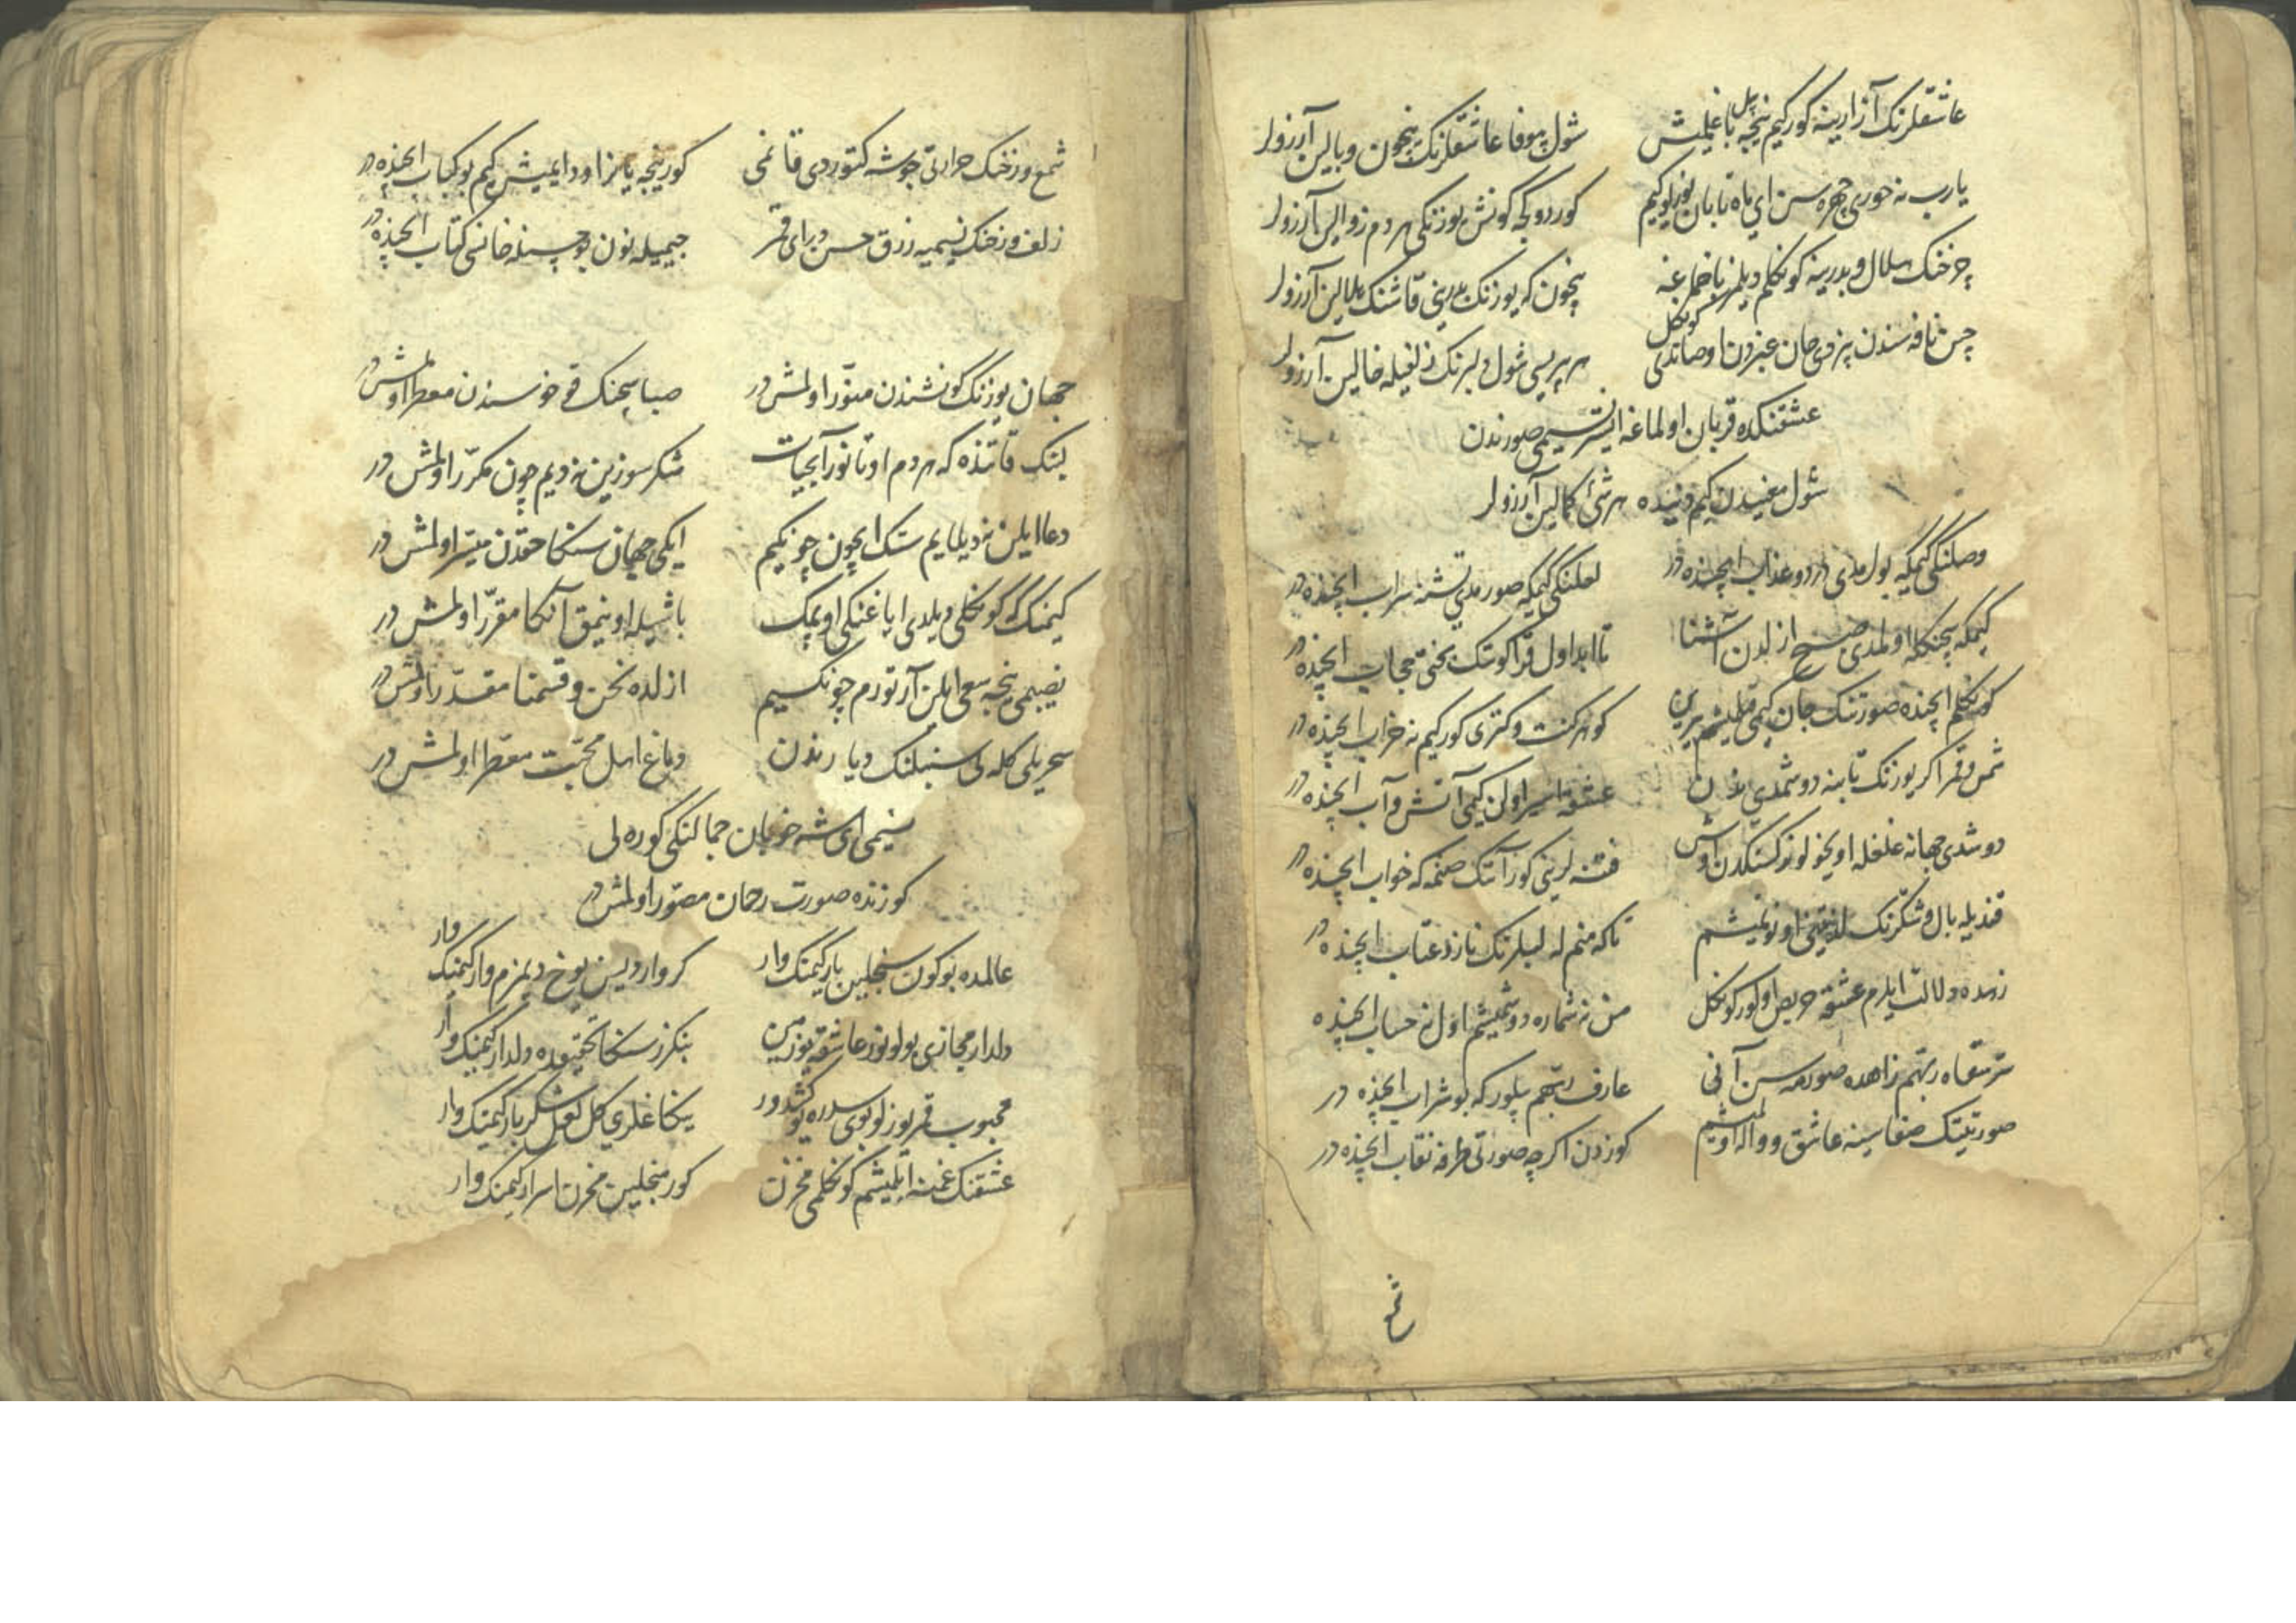 عاشقلرنک آزارینه کورکیم نیچه بل باغلمش
شول بیوفا عاشقلرنک نیچون وبالین آرزولر
یارب نه حوری چهره سن ای ماه تابان یوزلو کیم
کوردوکجه کونش یوزنکی هر دم زوالین آرزولر
چرخنک هلال و بدرینه کونکلم دیلمز باخمغه
نیچون که یوزنک بدرینی قاشنک هلالین آرزولر
چین نافه سندن بزدی جان عنبردن اوصاندی کونکل
هر بریسی شول دلبرنک زلفیله خالین آرزولر
عشقنکده قربان اولماغه ایستر نسیمی صورندن
شول معنیدن کیم دنیده هر شئ کمالین آرزولر
وصلنکی کیمکه بولمدی دردو عذاب ایچنده در
لعلنکی کیمکه صورمدی تشنه سراب ایچنده در
کیمکه سچنکله اولمدی صبح ازلدن آشنا
تا ابد اول قراکونک بختی حجاب ایچنده در
کونکلم ایچنده صورتنک جان کیمی قیلمیشم یرین
کوهر کنت و کنزی کورکیم نه خراب ایچنده در
شمس و قمر اکر یوزنک تابنه دوشمدی ندن
عشقه اسیر اولن کیمی آتش و آب ایچنده در
دوشدی جهانه غلغله اویخولو نرکسنکدن اوش
فتنه لرینی کور آننک صنمه که خواب ایچنده در
قندیله بال و شکرنک لذتینی اونوتمیشم
تاکه منم له لبلرنک ناز و عتاب ایچنده در
زهده دلالت ایلرم عشقه حریص اولور کونکل
من نه شماره دوشمیشم اول نه حساب ایچنده
سر سقاه ربهم زاهده صورمه سن آنی
عارف ربهم بیلور که بو شراب ایچنده در
صورتینک صفاسینه عاشق و واله اولمیشم
کوزدن اکرچه صورتی طرفه نقاب ایچنده در
شمع
شمع رخنک حرارتی جوشه کتوردی قانمی
کور نیجه یانر اوددا ایمیش کیم بو کباب ایچنده در
زلف و رخنک نسیمیه رزق حسن دبرای قمر
جیمیله نون بوجسینله خانسی کتاب ایچنده در
جهان یوزنک کونشندن منور اولمش در
صبا سچنک قوخوسندن معطر اولمش در
لبنک قاتنده که هر دم اوتانور آبحیات
شکر سوزین نه دیم چون مکرر اولمش در
دعا ایلن نه دیلایم سنک ایچون چونکیم
ایکی جهان سنکا حقدن میسر اولمش در
کیمنک کونکلی دیلدی ایاغنکی اوپمک
باشیله اوینمق آنکا مقرر اولمش در
نصیبمی نیجه سعی ایلن آرتورم چونکیم
ازلده نحن و قسمنا مقدر اولمش در
سحر یلی کله لی سنبلنک دیارندن
دماغ اهل محبت معطر اولمش در
نسیمی ای شه خوبان جمالنکی کوره لی
کوزنده صورت رحمان مصور اولمش در
عالمده بوکون سنجلین یار کیمنک وار
کر وار دیسن یوخ دیمزم وار کیمنک وار
دلدار مجازی بولونور عاشقه یوز مین
بنکزر سنکا تحقیقده دلدار کیمنک وار
محبوب قمر یوزلو بوی سدره یوکشدور
ینکاغلری کل لعل شکر بار کیمنک وار
عشقنک غمنه ایلمیشم کونکلمی مخزن
کور منجلین مخزن اسرار کیمنک وار